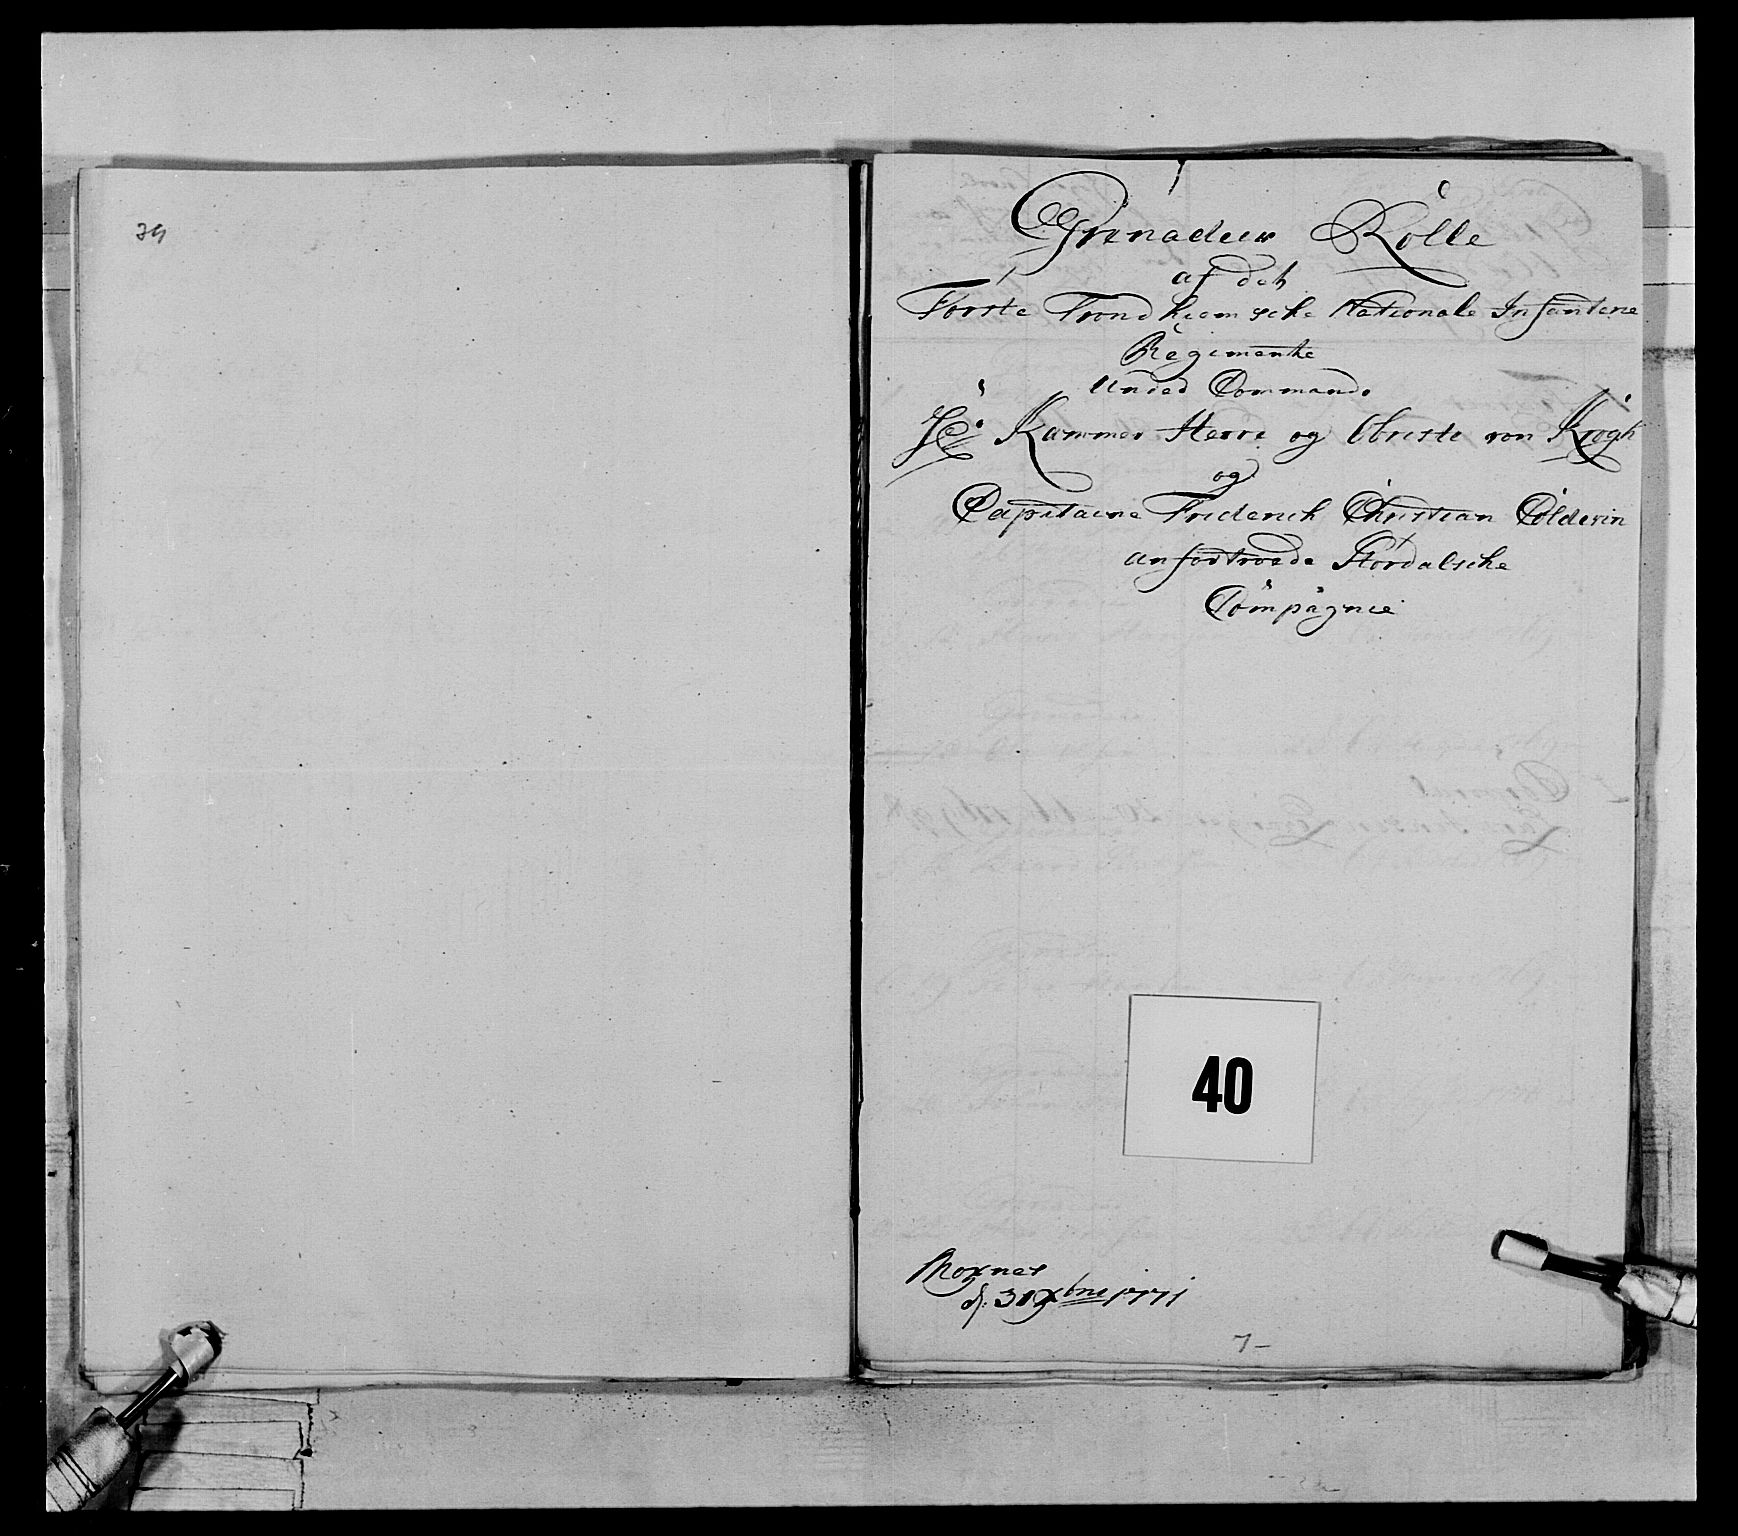 39
Grenadeer Rolle
af det
Förste Trondhiemsche Nationale Infanterie
Regimente
Under Commando
Hr Kammer Herre og Obriste von Krogh
og
Capitaine Friderich Christian Colderin
anfortroede Stordalsche
Compagnie
40
Moxnes
d: 31 Xbris 1771
7-